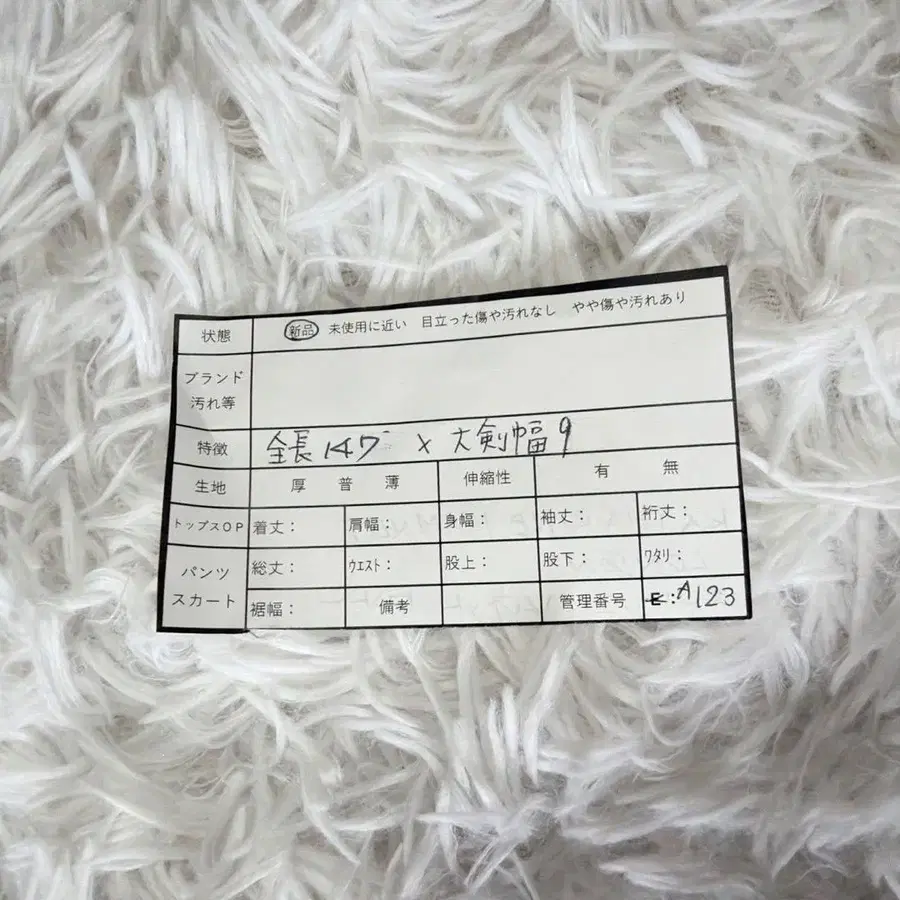 状態 新品 未使用に近い 目立った傷や汚れなし やや傷や汚れあり
ブランド
汚れ等
特徴 全長147 × 大剣幅9
生地 厚 普 薄 伸縮性 有 無
トップスOP 着丈: 肩幅: 身幅: 袖丈: 裄丈:
パンツ
スカート
総丈: ウエスト: 股上: 股下: ワタリ:
裾幅: 備考 管理番号 E:A123